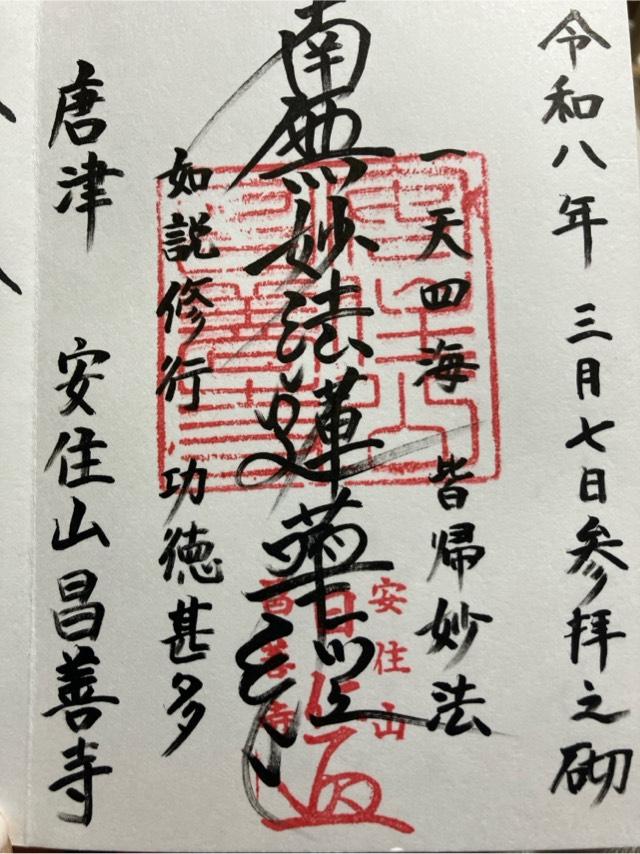 令和八年 三月七日参拝之砌
一天四海 皆帰妙法
南無妙法蓮華経
如説修行 功徳甚多
唐津 安住山昌善寺
安住山